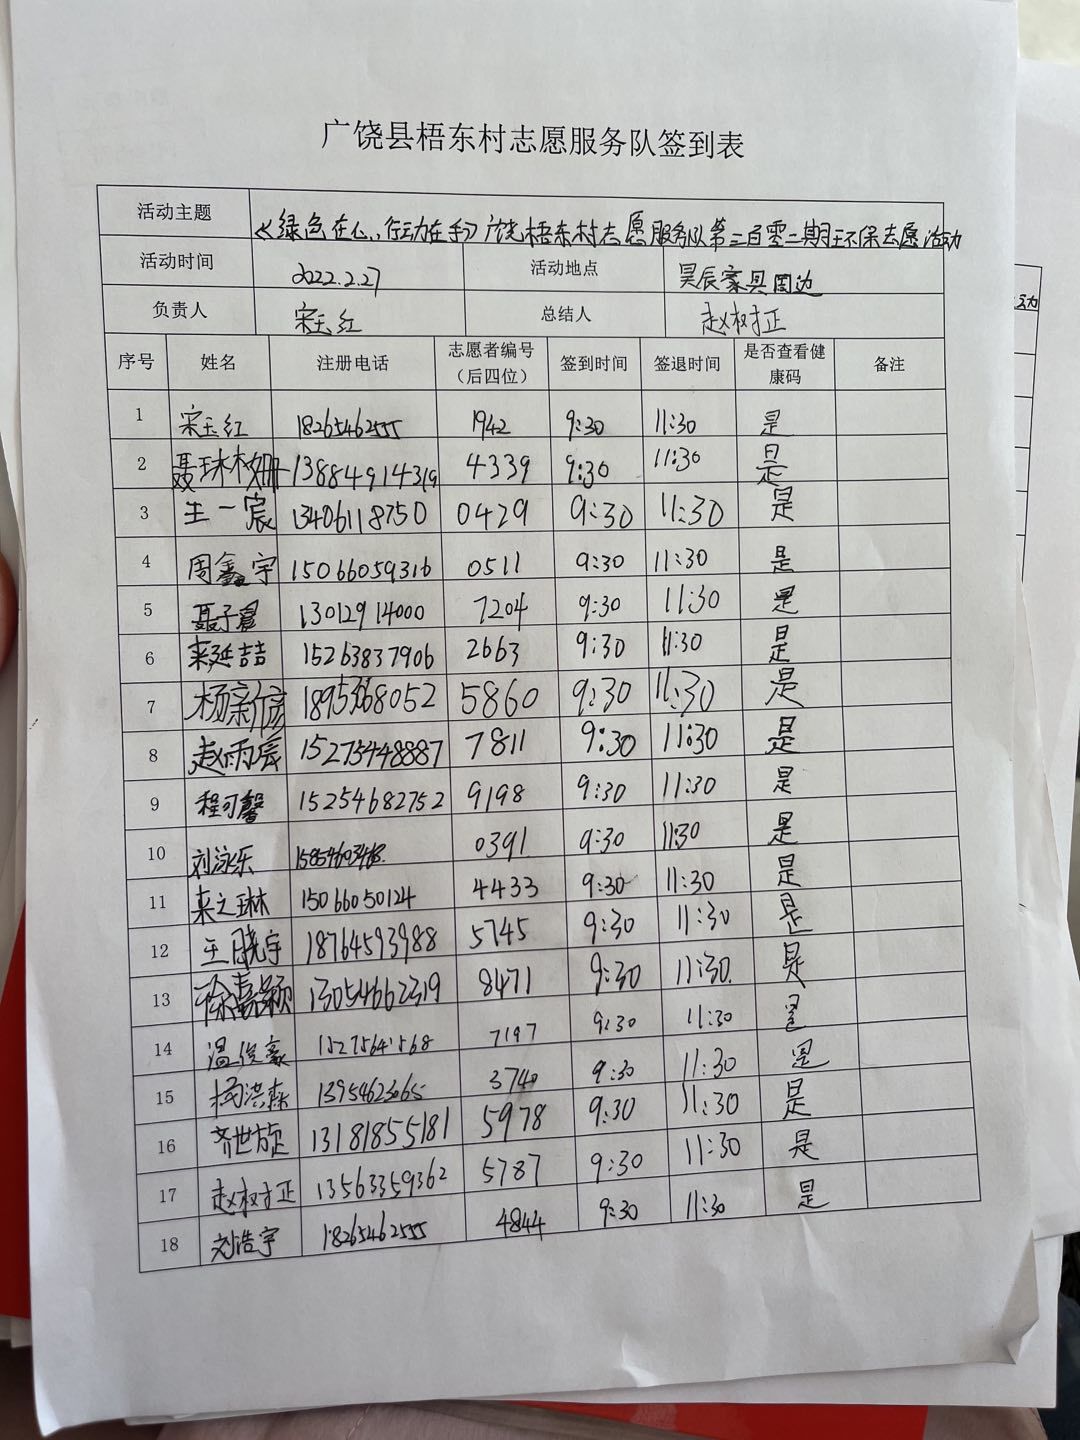 广饶县梧东村志愿服务队签到表
活动主题 《绿色在心,行动在手》广饶梧东村志愿服务队第三百零二期环保志愿活动
活动时间 2022.2.27 活动地点 昊辰家具周边
负责人 宋玉红 总结人 赵树正
序号 姓名 注册电话 志愿者编号(后四位) 签到时间 签退时间 是否查看健康码 备注
1 宋玉红 18265462555 1942 9:30 11:30 是
2 13884914319 4339 9:30 11:30 是
3 生一宸 13406118750 0429 9:30 11:30 是
4 周鑫宇 15066059316 0511 9:30 11:30 是
5 聂子宸 13012914000 7204 9:30 11:30 是
6 来延喆 15263837906 2663 9:30 11:30 是
7 杨新彦 18953668052 5860 9:30 11:30 是
8 赵雨辰 15275448887 7811 9:30 11:30 是
9 程可馨 15254682752 9198 9:30 11:30 是
10 刘泳乐 0391 9:30 11:30 是
11 来之琳 15066050124 4433 9:30 11:30 是
12 王晓宇 18764593988 5745 9:30 11:30 是
13 徐嘉颖 13054662319 8471 9:30 11:30 是
14 温俊豪 15275641568 7197 9:30 11:30 是
15 杨洪森 13954623065 3740 9:30 11:30 是
16 齐世旋 13181855181 5978 9:30 11:30 是
17 赵树正 13563359362 5787 9:30 11:30 是
18 刘浩宇 18265462555 4844 9:30 11:30 是
动